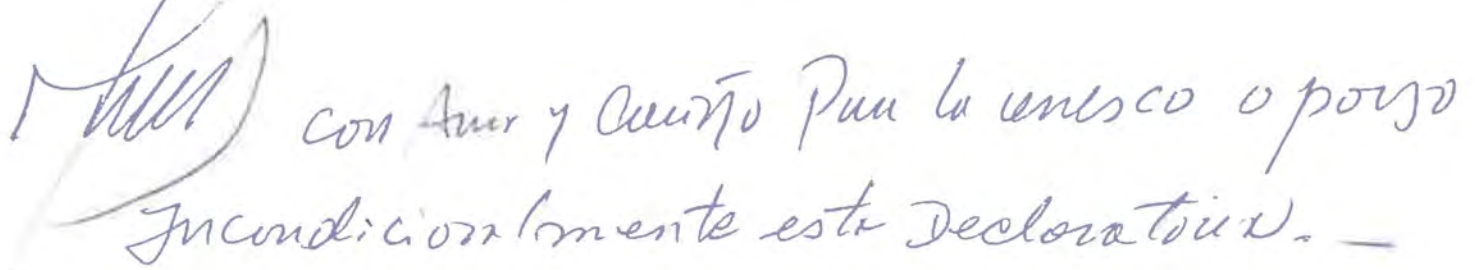 con Amor y Cariño Para la unesco apoyo
Incondicionalmente esta Declaratoria.